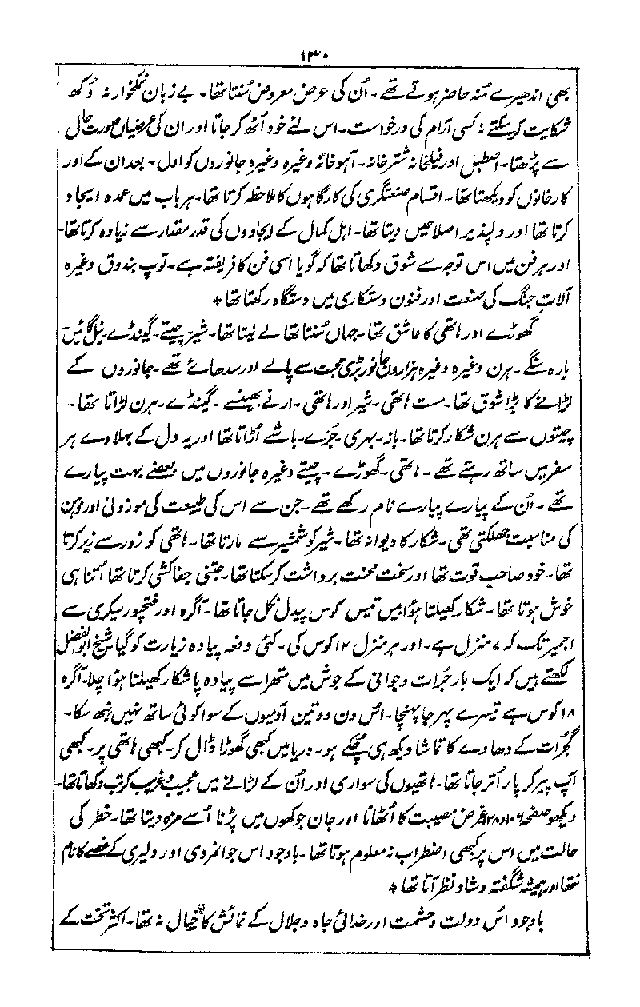 ۱۳۰
بھی اندھیرے مُنہ حاضر ہوتے تھے۔ اُن کی عرض معروض سُنتا تھا۔ بے زبان نمکخوار نہ دُکھ
شکایت کر سکتے نہ کسی آرام کی درخواست۔ اس لئے خود اُٹھ کر جاتا اور ان کی عرضیاں صورت حال
سے پڑھتا۔ اصطبل اور فیلخانہ شترخانہ۔ آہوخانہ وغیرہ وغیرہ جانوروں کو اول۔ بعد ان کے اور
کارخانوں کو دیکھتا تھا۔ اقسام صنعتگری کی کارگاہوں کا ملاحظہ کرتا تھا۔ ہر باب میں عمدہ ایجاد
کرتا تھا اور دلپذیر اصلاحیں دیتا تھا۔ اہل کمال کے ایجادوں کی قدر مقدار سے زیادہ کرتا تھا۔
اور ہر فن میں اس توجہ سے شوق دکھاتا تھا کہ گویا اسی فن کا فریفتہ ہے۔ توپ بندوق وغیرہ
آلاتِ جنگ کی صنعت اور فنون دستکاری میں دستگاہ رکھتا تھا *
گھوڑے اور ہاتھی کا عاشق تھا۔ جہاں سُنتا تھا لے لیتا تھا۔ شیر چیتے۔ گینڈے نیل گائیں
بارہ سنگے۔ ہرن وغیرہ وغیرہ ہزاروں جانور بڑی محبت سے پالے اور سدھائے تھے۔ جانوروں کے
لڑانے کا بڑا شوق تھا۔ مست ہاتھی۔ شیر اور ہاتھی۔ ارنے بھینسے۔ گینڈے۔ ہرن لڑاتا تھا۔
چیتوں سے ہرن شکار کرتا تھا۔ باز۔ بہری۔ جُرّے۔ باشے اُڑاتا تھا اور یہ دل کے بہلاوے ہر
سفر میں ساتھ رہتے تھے۔ ہاتھی۔ گھوڑے۔ چیتے وغیرہ جانوروں میں بعضے بہت پیارے
تھے۔ اُن کے پیارے پیارے نام رکھے تھے۔ جن سے اس کی طبیعت کی موزونی اور ذہن
کی مناسبت جھلکتی تھی۔ شکار کا دیوانہ تھا۔ شیر کو شمشیر سے مارتا تھا۔ ہاتھی کو زور سے زیر کرتا
تھا۔ خود صاحب قوت تھا اور سخت محنت برداشت کر سکتا تھا۔ جتنی جفاکشی کرتا تھا اُتنا ہی
خوش ہوتا تھا۔ شکار کھیلتا ہؤا بیس تیس کوس پیدل نکل جاتا تھا۔ آگرہ اور فتحپور سیکری سے
اجمیر تک کہ ۷ منزل ہے۔ اور ہر منزل ۱۲ کوس کی۔ کئی دفعہ پیادہ زیارت کو گیا شیخ ابوالفضل
لکھتے ہیں کہ ایک بار جُرات و جوانی کے جوش میں متھرا سے پیادہ پا شکار کھیلتا ہؤا چلا۔ آگرہ
۱۸ کوس ہے تیسرے پہر جا پہنچا۔ اُس دن دو تین آدمیوں کے سوا کوئی ساتھ نہیں نبھ سکا۔
گجرات کے دھاوے کا تماشا دیکھ ہی چکے ہو۔ دریا میں کبھی گھوڑا ڈال کر۔ کبھی ہاتھی پر۔ کبھی
آپ پیر کر پار اُتر جاتا تھا۔ ہاتھیوں کی سواری اور اُن کے لڑانے میں عجیب و غریب کرتب دکھاتا تھا۔
دیکھو صفحہ غرض مصیبت کا اُٹھانا اور جان جوکھوں میں پڑنا اُسے مزہ دیتا تھا۔ خطر کی
حالت میں اس پر کبھی اضطراب نہ معلوم ہوتا تھا۔ باوجود اس جوانمردی اور دلیری کے غصے کا نام
نہ تھا اور ہمیشہ شگفتہ و شاد نظر آتا تھا *
باوجود اس دولت و حشمت اور خدائی جاہ و جلال کے نمائش کا خیال نہ تھا۔ اکثر تخت کے